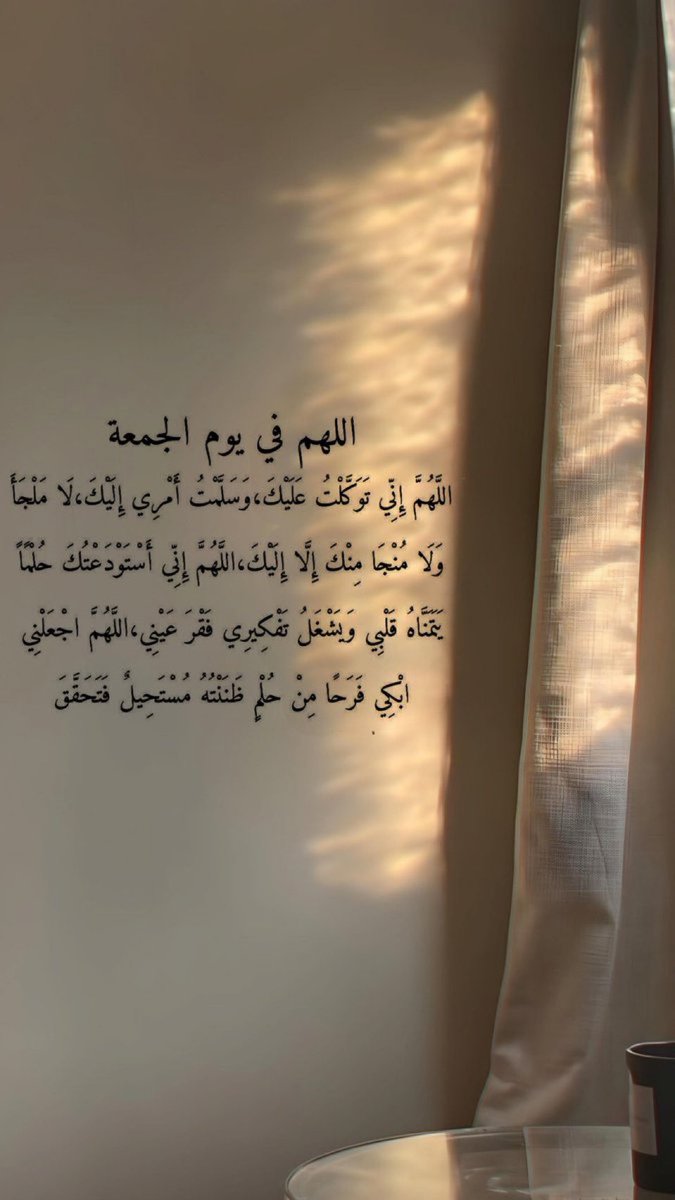 اللهم في يوم الجمعة
اللَّهُمَّ إِنِّي تَوَكَّلْتُ عَلَيْكَ،وَسَلَّمْتُ أَمْرِي إِلَيْكَ،لَا مَلْجَأَ
وَلَا مُنْجَا مِنْكَ إِلَّا إِلَيْكَ،اللَّهُمَّ إِنِّي أَسْتَوْدَعْتُكَ حُلْمًاً
يَتَمَنَّاهُ قَلْبِي وَيَشْغَلُ تَفْكِيرِي فَقْرَ عَيْنِي،اللَّهُمَّ اجْعَلْنِي
ابْكِي فَرَحًا مِنْ حُلْمٍ ظَنَنْتُهُ مُسْتَحِيلٌ فَتَحَقَّقَ